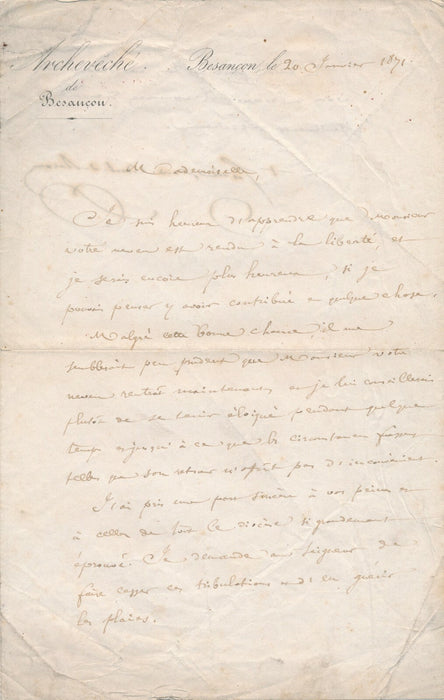 Archevêché
de
Besançon.
Besançon, le 20 Janvier 1871.
Mademoiselle,
Je suis heureux d'apprendre que Monsieur
votre neveu est rendu à la liberté, et
je serais encore plus heureux, si je
pouvais penser y avoir contribué en quelque chose.
Malgré cette bonne chance, il me
semblerait peu prudent que Monsieur votre
neveu rentrât maintenant, et je lui conseillerais
plutôt de se tenir éloigné pendant quelque
temps et jusqu'à ce que les circonstances fussent
telles que son retour n'offrît pas d'inconvénient.
J'ai pris une part sincère à vos peines et
à celles de tout ce diocèse si grandement
éprouvé. Je demande au Seigneur de
faire cesser ces tribulations et d'en guérir
les plaies.